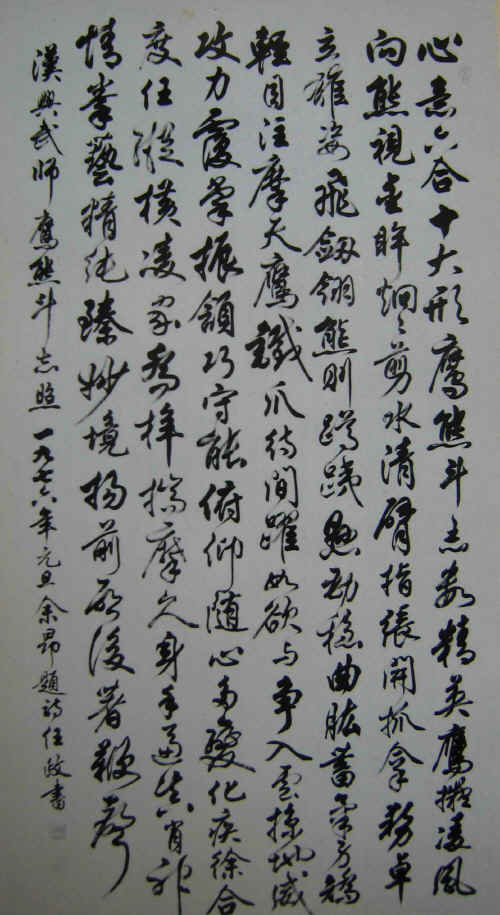 心意六合十大形鷹熊斗志精英鷹凌風
向熊視金眸炯々剪水清臂指張開抓拿勢卓
立雄姿飛劔翎熊則蹲勁穩曲肱蓄氣方矯
輕目注摩天鷹鐵爪待間躍如欲与争入雲掠地
攻力氣振領巧守能俯仰随心多變化疾徐合
度任縱橫凌家喬梓揣摩久身手逼真肖神
情拳藝精純臻妙境揚前啟後著鞭聲
漢興武師鷹熊斗志照 一九七六年元旦余昂題詩任政書